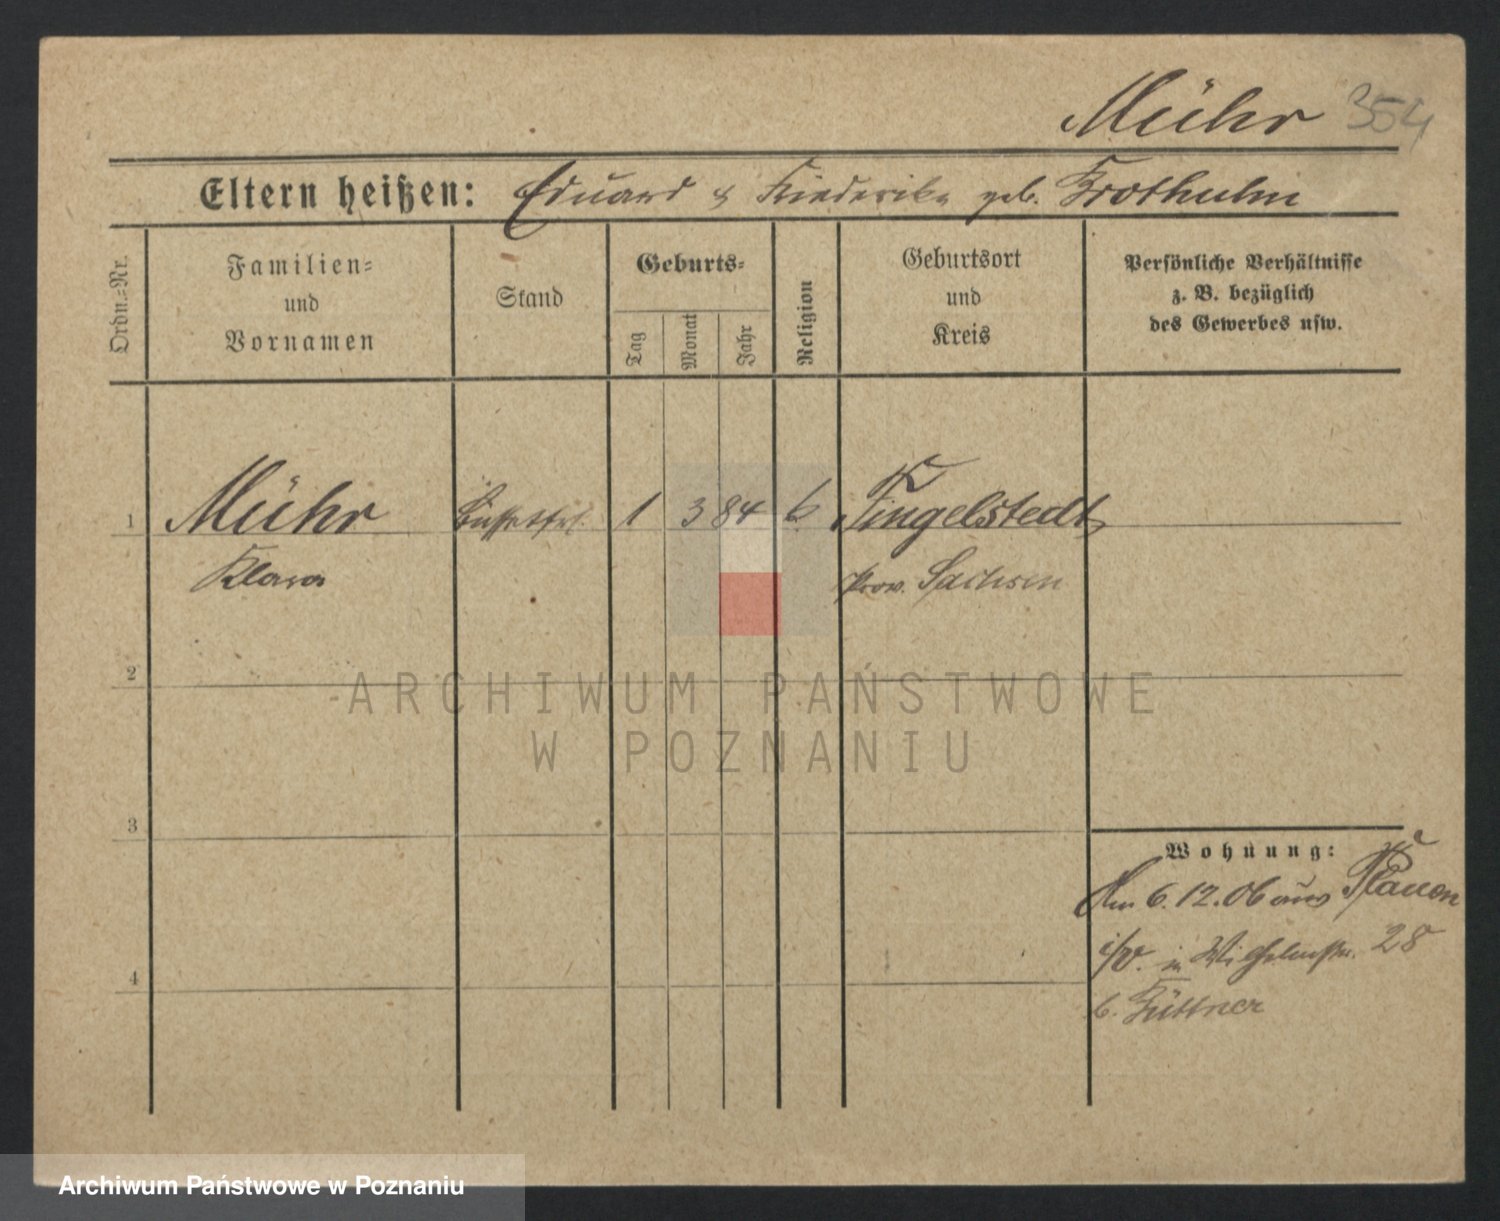 Mühr 354
Eltern heißen: Eduard & Friederike geb.
Ordn.-Nr.
Familien-
und
Vornamen
Stand
Geburts-
Tag
Monat
Jahr
Religion
Geburtsort
und
Kreis
Persönliche Verhältnisse
z. B. bezüglich
des Gewerbes usw.
1 Mühr 1 3 84
Klara Prov. Sachsen
2
3
4
Wohnung:
Am 6.12.06 aus Plauen
i/V. in Wilhelmstr. 28
b. Büttner
ARCHIWUM PAŃSTWOWE
W POZNANIU
Archiwum Państwowe w Poznaniu